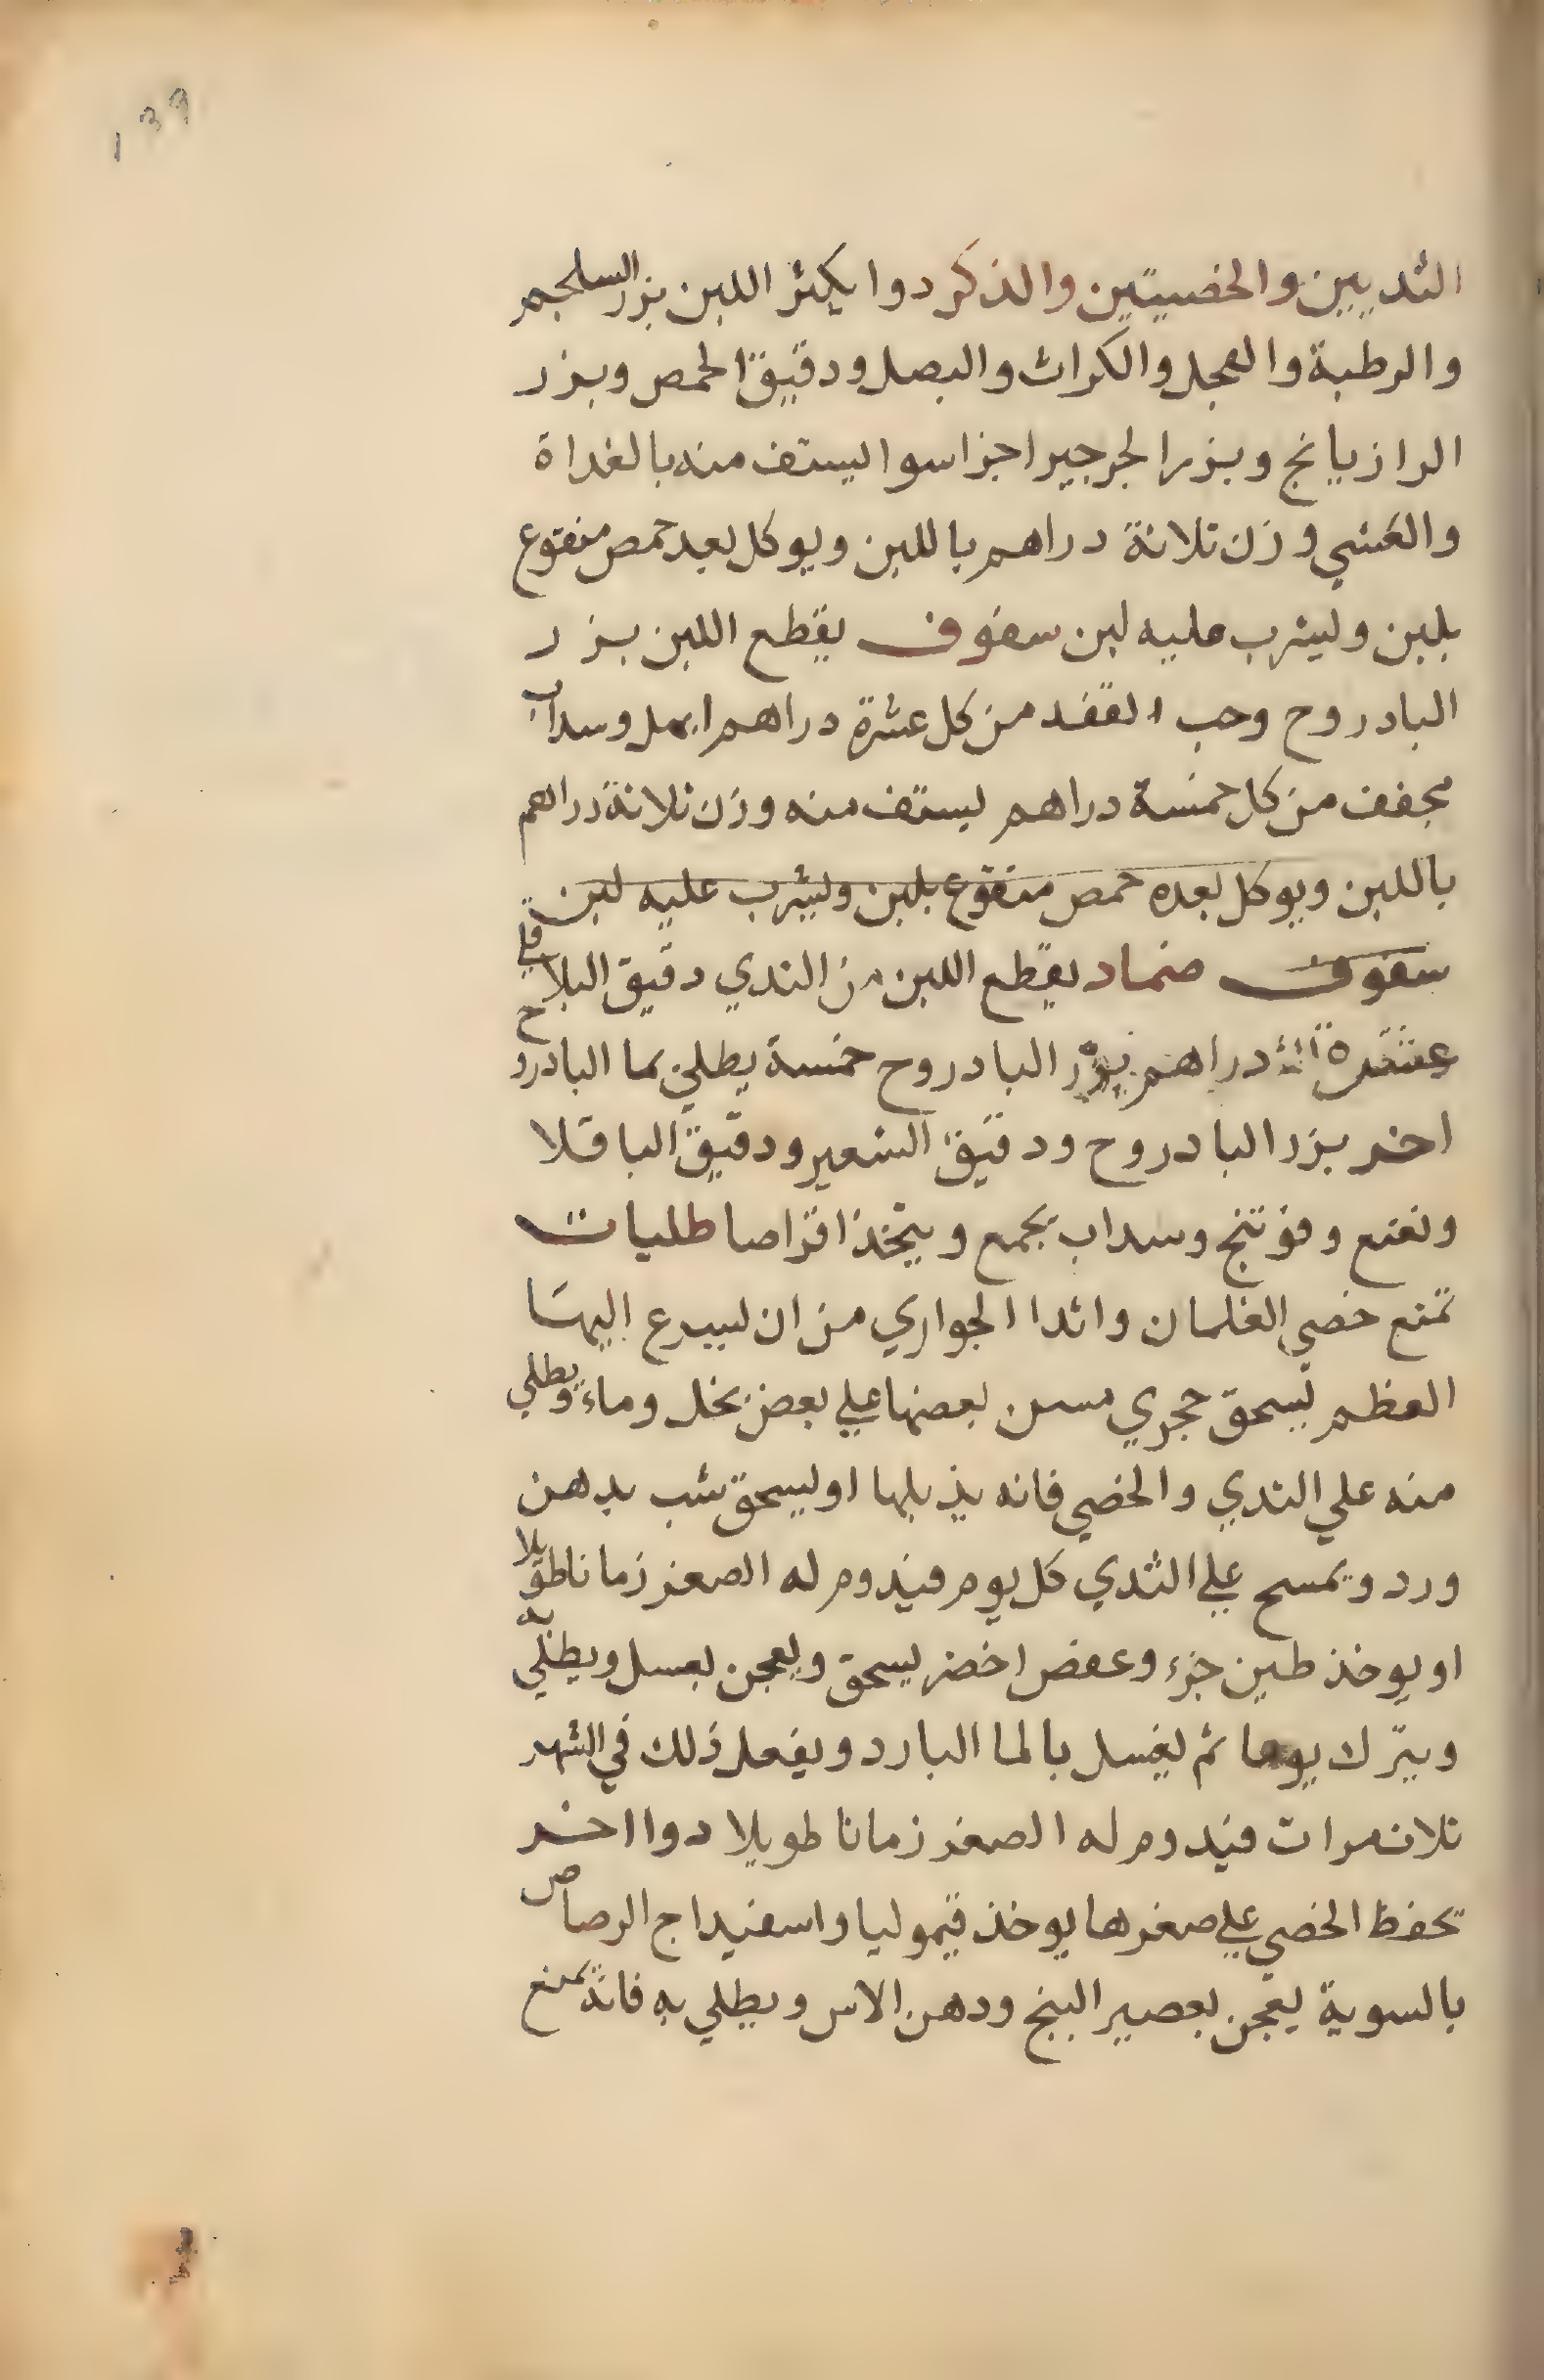 139
الثديين والخصيتين والذكر دوا يكثر اللبن بزر السلجم
والرطبة والفجل والكراث والبصل ودقيق الحمص وبزر
الرازيانج وبزر الجرجير اجزا سوا يستف منه بالغداة
والعشي وزن ثلاثة دراهم باللبن ويوكل بعد حمص منقوع
بلبن وليشرب عليه لبن سفوف يقطع اللبن بزر
البادروج وحب الفقد من كل عشرة دراهم ابهل وسداب
مجفف من كل خمسة دراهم يستف منه وزن ثلاثة دراهم
باللبن ويوكل بعده حمص منقوع بلبن وليشرب عليه لبن
سفوف ضماد يقطع اللبن من الثدي دقيق الباقلي
عشرة دراهم بزر البادروج خمسة يطلي بما البادروج
اخر بزر البادروج ودقيق الشعير ودقيق الباقلا
ونعنع وفوتنج وسداب يجمع ويتخذ اقراصا طليات
تمنع خصي الغلمان واثدا الجواري من ان يسرع اليها
العظم يسحق حجري مسن بعضها علي بعض بخل وماء ويطلي
منه علي الثدي والخصي فانه يذبلها او يسحق شب بدهن
ورد ويمسح علي الثدي كل يوم فيدوم له الصغر زمانا طويلا
او يوخذ طين جزء وعفص اخضر يسحق ويعجن بعسل ويطلي به
ويترك يوما ثم يغسل بالما البارد ويفعل ذلك في الشهر
ثلاث مرات فيدوم له الصغر زمانا طويلا دوا اخر
تحفظ الخصي علي صغرها يوخذ قيموليا واسفيداج الرصاص
بالسوية يعجن بعصير البنج ودهن الاس ويطلي به فانه يمنع